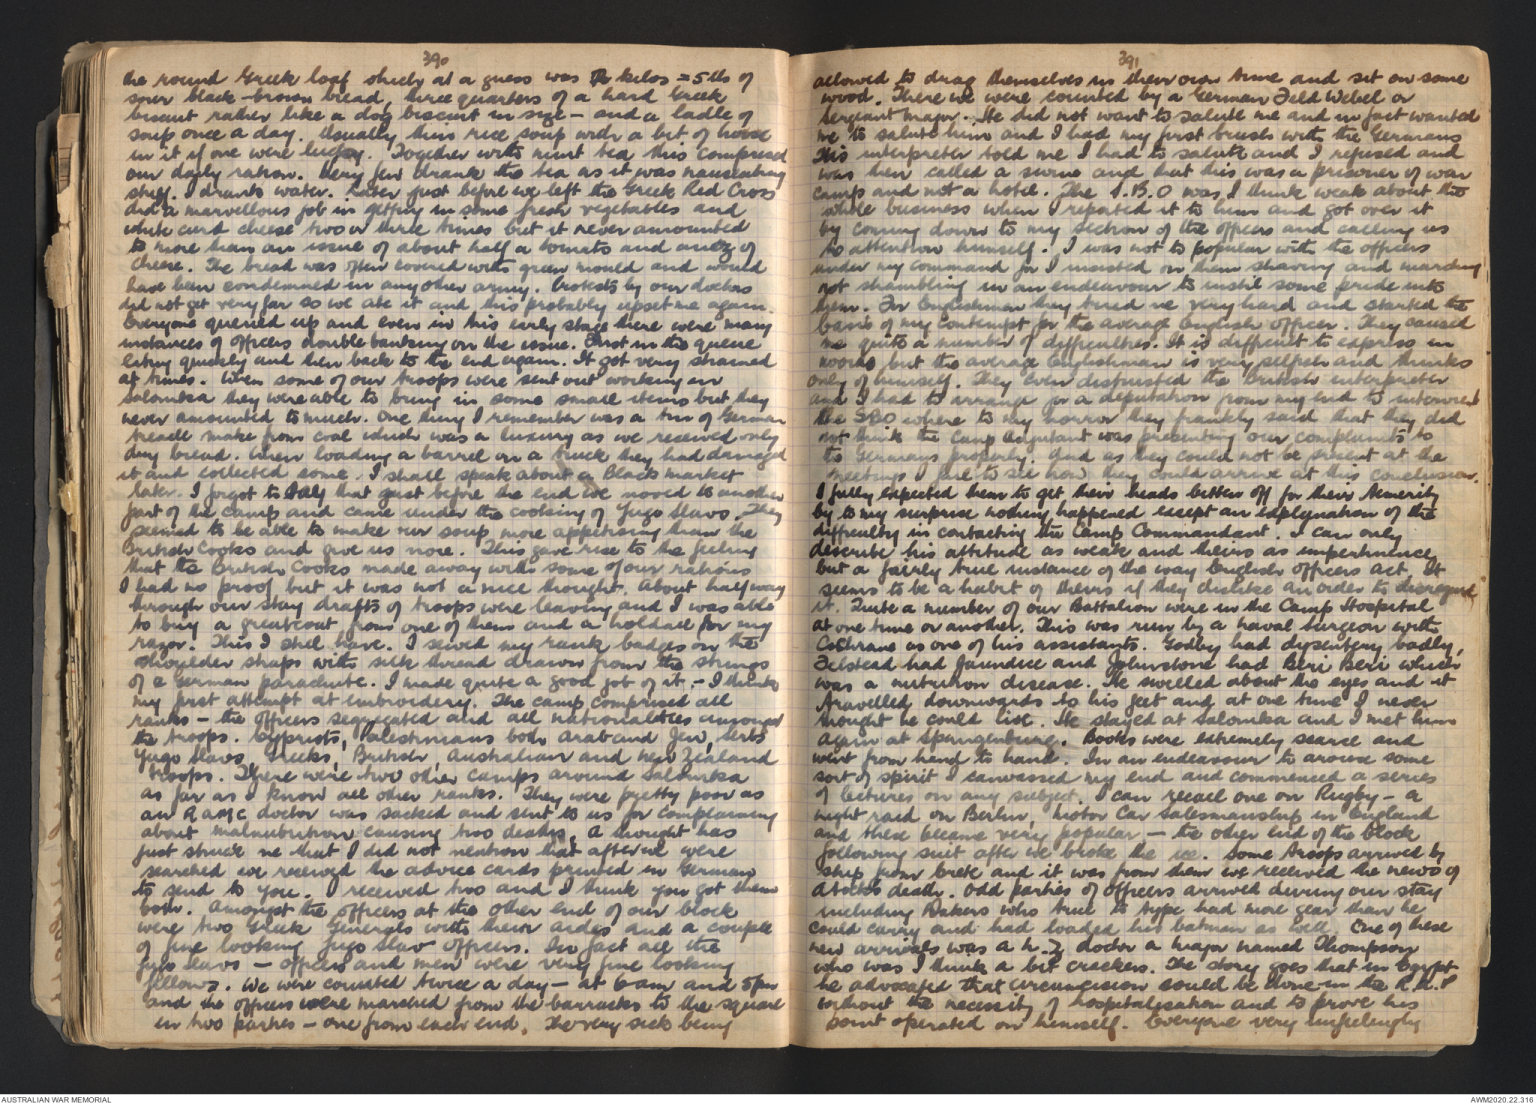 390
the round Greek loaf which at a guess was 2½ kilos = 5 lbs of
sour black-brown bread, three quarters of a hard Greek
biscuit rather like a dog biscuit in size - and a ladle of
soup once a day. Usually thin rice soup with a bit of horse
in it if one were lucky. Together with mint tea this comprised
our daily ration. Very few drank the tea as it was nauseating
stuff. I drank water. Later just before we left the Greek Red Cross
did a marvellous job in getting in some fresh vegetables and
white curd cheese two or three times but it never amounted
to more than an issue of about half a tomato and an oz of
cheese. The bread was often covered with green mould and would
have been condemned in any other army. Protests by our doctors
did not get very far so we ate it and this probably upset me again.
Everyone queried up and even in this early stage there were many
instances of officers double banking on the issue. First in the queue
eating quickly and then back to the end again. It got very strained
at times. When some of our troops were sent out working in
Salonika they were able to bring in some small items but they
never amounted to much. One thing I remember was a tin of German
treacle make from coal which was a luxury as we received only
dry bread. When loading a barrel on a truck they had damaged
it and collected some. I shall speak about a Black market
later. I forgot to say that just before the end we moved to another
part of the camp and came under the cooking of Jugo Slavs. They
seemed to be able to make our soup more appetising than the
British Cooks and give us more. This gave rise to the feeling
that the British Cooks made away with some of our rations
I had no proof but it was not a nice thought. About half way
through our stay drafts of troops were leaving and I was able
to buy a greatcoat from one of them and a holdall for my
razor. This I still have. I sewed my rank badges on the
shoulder straps with silk thread drawn from the strings
of a German parachute. I made quite a good job of it - I think
my first attempt at embroidery. The camp comprised all
ranks - the officers segregated and all nationalities amongst
the troops. Cypriots, Palestinians both Arab and Jew, Serbs
Yugo Slavs, Greeks, British, Australian and New Zealand
troops. There were two other camps around Salonika
as far as I know all other ranks. They were pretty poor as
an RAMC doctor was sacked and sent to us for complaining
about malnutrition causing two deaths. A thought has
just struck me that I did not mention that after we were
searched we received the advice cards printed in German
to send to you. I received two and I think you got them
both. Amongst the officers at the other end of our block
were two Greek Generals with their aides and a couple
of fine looking Jugo Slav officers. In fact all the
Jugo Slavs - officers and men were very fine looking
fellows. We were counted twice a day - at 6 am and 5 pm
and the officers were marched from the barracks to the square
in two parties - one from each end. The very sick being
391
allowed to drag themselves in their own time and sit on some
wood. There we were counted by a German Feld Webel or
Sergeant major. He did not want to salute me and in fact wanted
me to salute him and I had my first brush with the Germans
His interpreter told me I had to salute and I refused and
was then called a swine and that this was a prisoner of war
camp and not a hotel. The S.B.O was I think weak about the
whole business when I reported it to him and got over it
by coming down to my section of the officers and calling us
to attention himself. I was not to popular with the officers
under my command for I insisted on them shaving and marching
not shambling in an endeavour to instil some pride into
them. For Englishmen they tried me very hard and started the
basis of my contempt for the average English officer. They caused
me quite a number of difficulties. It is difficult to express in
words but the average Englishman is very selfish and thinks
only of himself. They even distrusted the British interpreter
and I had to arrange for a deputation from my end to interview
the SBO where to my horror they frankly said that they did
not think the Camp Adjutant was presenting our complaints to
the Germans properly. And as they could not be present at the
meetings I fail to see how they could arrive at this conclusion.
I fully expected them to get their heads bitten off for their temerity
by to my surprise nothing happened except an explanation of the
difficulty in contacting the Camp Commandant. I can only
describe his attitude as weak and theirs as impertinence
but a fairly true instance of the way English officers act. It
seems to be a habit of theirs if they dislike an order to disregard
it. Quite a number of our Battalion were in the Camp Hospital
at one time or another. This was run by a naval surgeon with
Cochrane as one of his assistants. Godby had dysentery badly,
Felstead had Jaundice and Johnstone had Beri Beri which
was a nutrition disease. He swelled about the eyes and it
travelled downwards to his feet and at one time I never
thought he could live. He stayed at Salonika and I met him
again at Spangenburg. Books were extremely scarce and
went from hand to hand. In an endeavour to arouse some
sort of spirit I canvassed my end and commenced a series
of lectures on any subject. I can recall one on Rugby - a
night raid on Berlin, Motor Car Salesmanship in England
and these became very popular - the other end of the block
following suit after we broke the ice. Some troops arrived by
ship from Crete and it was from them we received the news of
death. Odd parties of officers arrived during our stay
including Bakers who true to type had more gear than he
could carry and had loaded his batman as well. One of these
new arrivals was a N.Z doctor a major named Thompson
who was I think a bit crackers. The story goes that in Egypt
he advocated that circumcision could be done in the R.A.P
without the necessity of hospitalisation and to prove his
point operated on himself. Everyone very unfeelingly
AUSTRALIAN WAR MEMORIAL
AWM2020.22.316